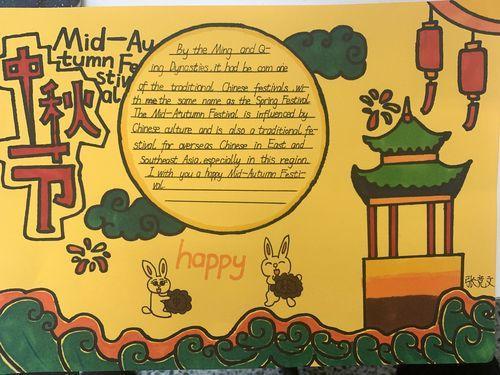 中秋节
Mid-Au
tumn Fe
stiv
al
By the Ming and Q-
ing Dynasties, it had be com one
of the traditional Chinese festivals, wi-
th me the same name as the Spring Festival.
The Mid-Autumn Festival is influenced by
Chinese culture and is also a traditional fe-
stival for overseas Chinese in East and
Southeast Asia, especially in this region.
I with you a happy Mid-Autumn Festi-
val.
happy